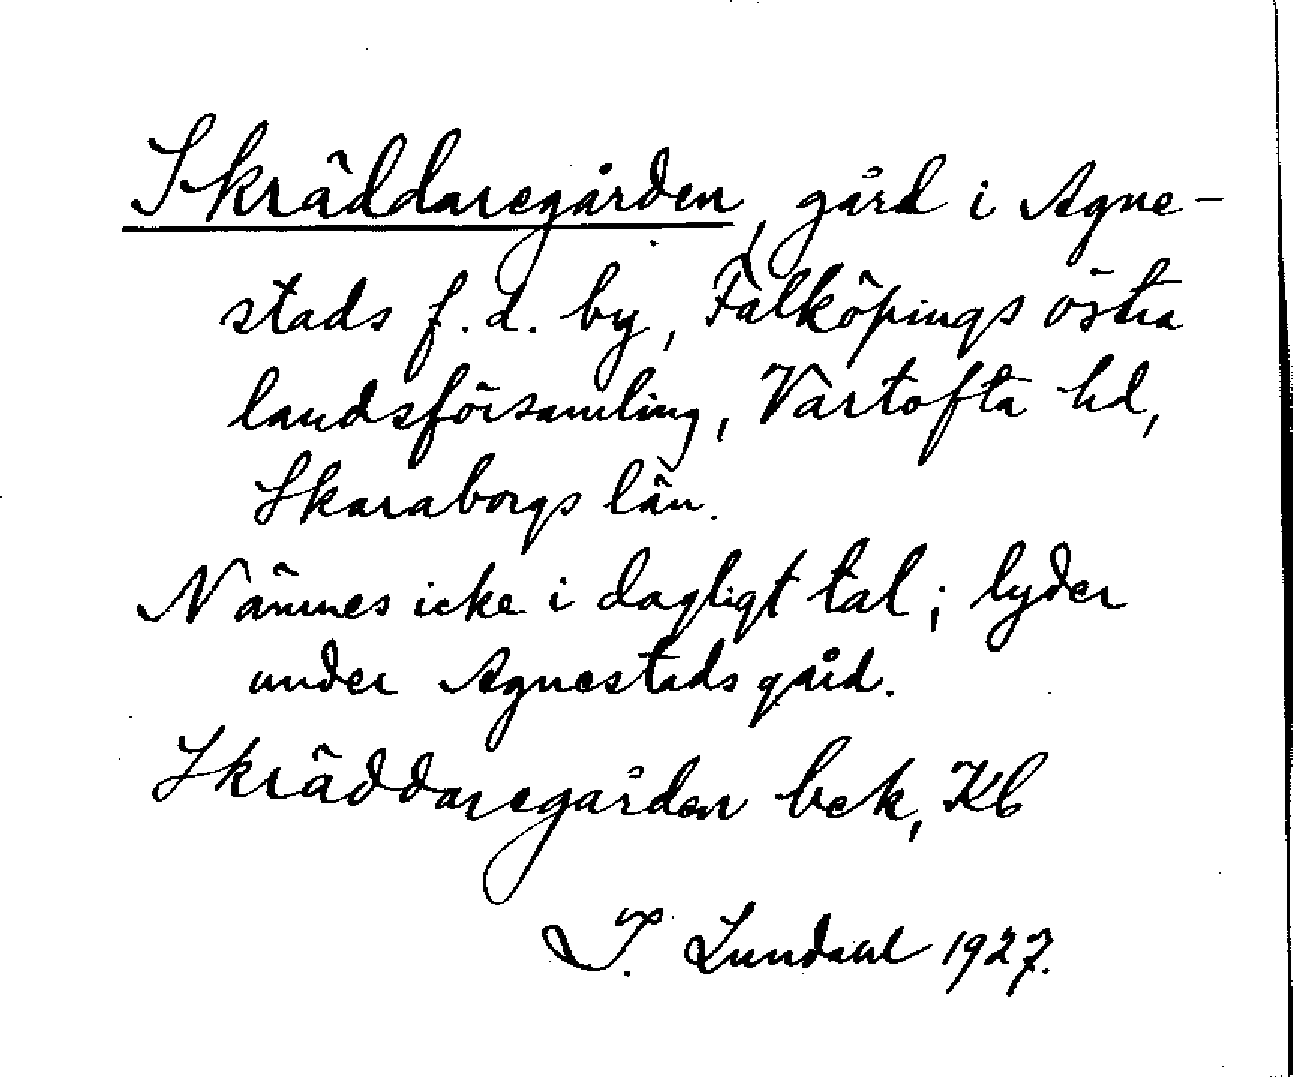 Skräddaregården, gård i Agne-
stads f.d. by, Falköpings östra
landsförsamling, Vartofta hd,
Skaraborgs län.
Nämnes icke i dagligt tal; lyder
under Agnestads gård.
Skräddaregården bek, Kb
I. Lundahl 1927.